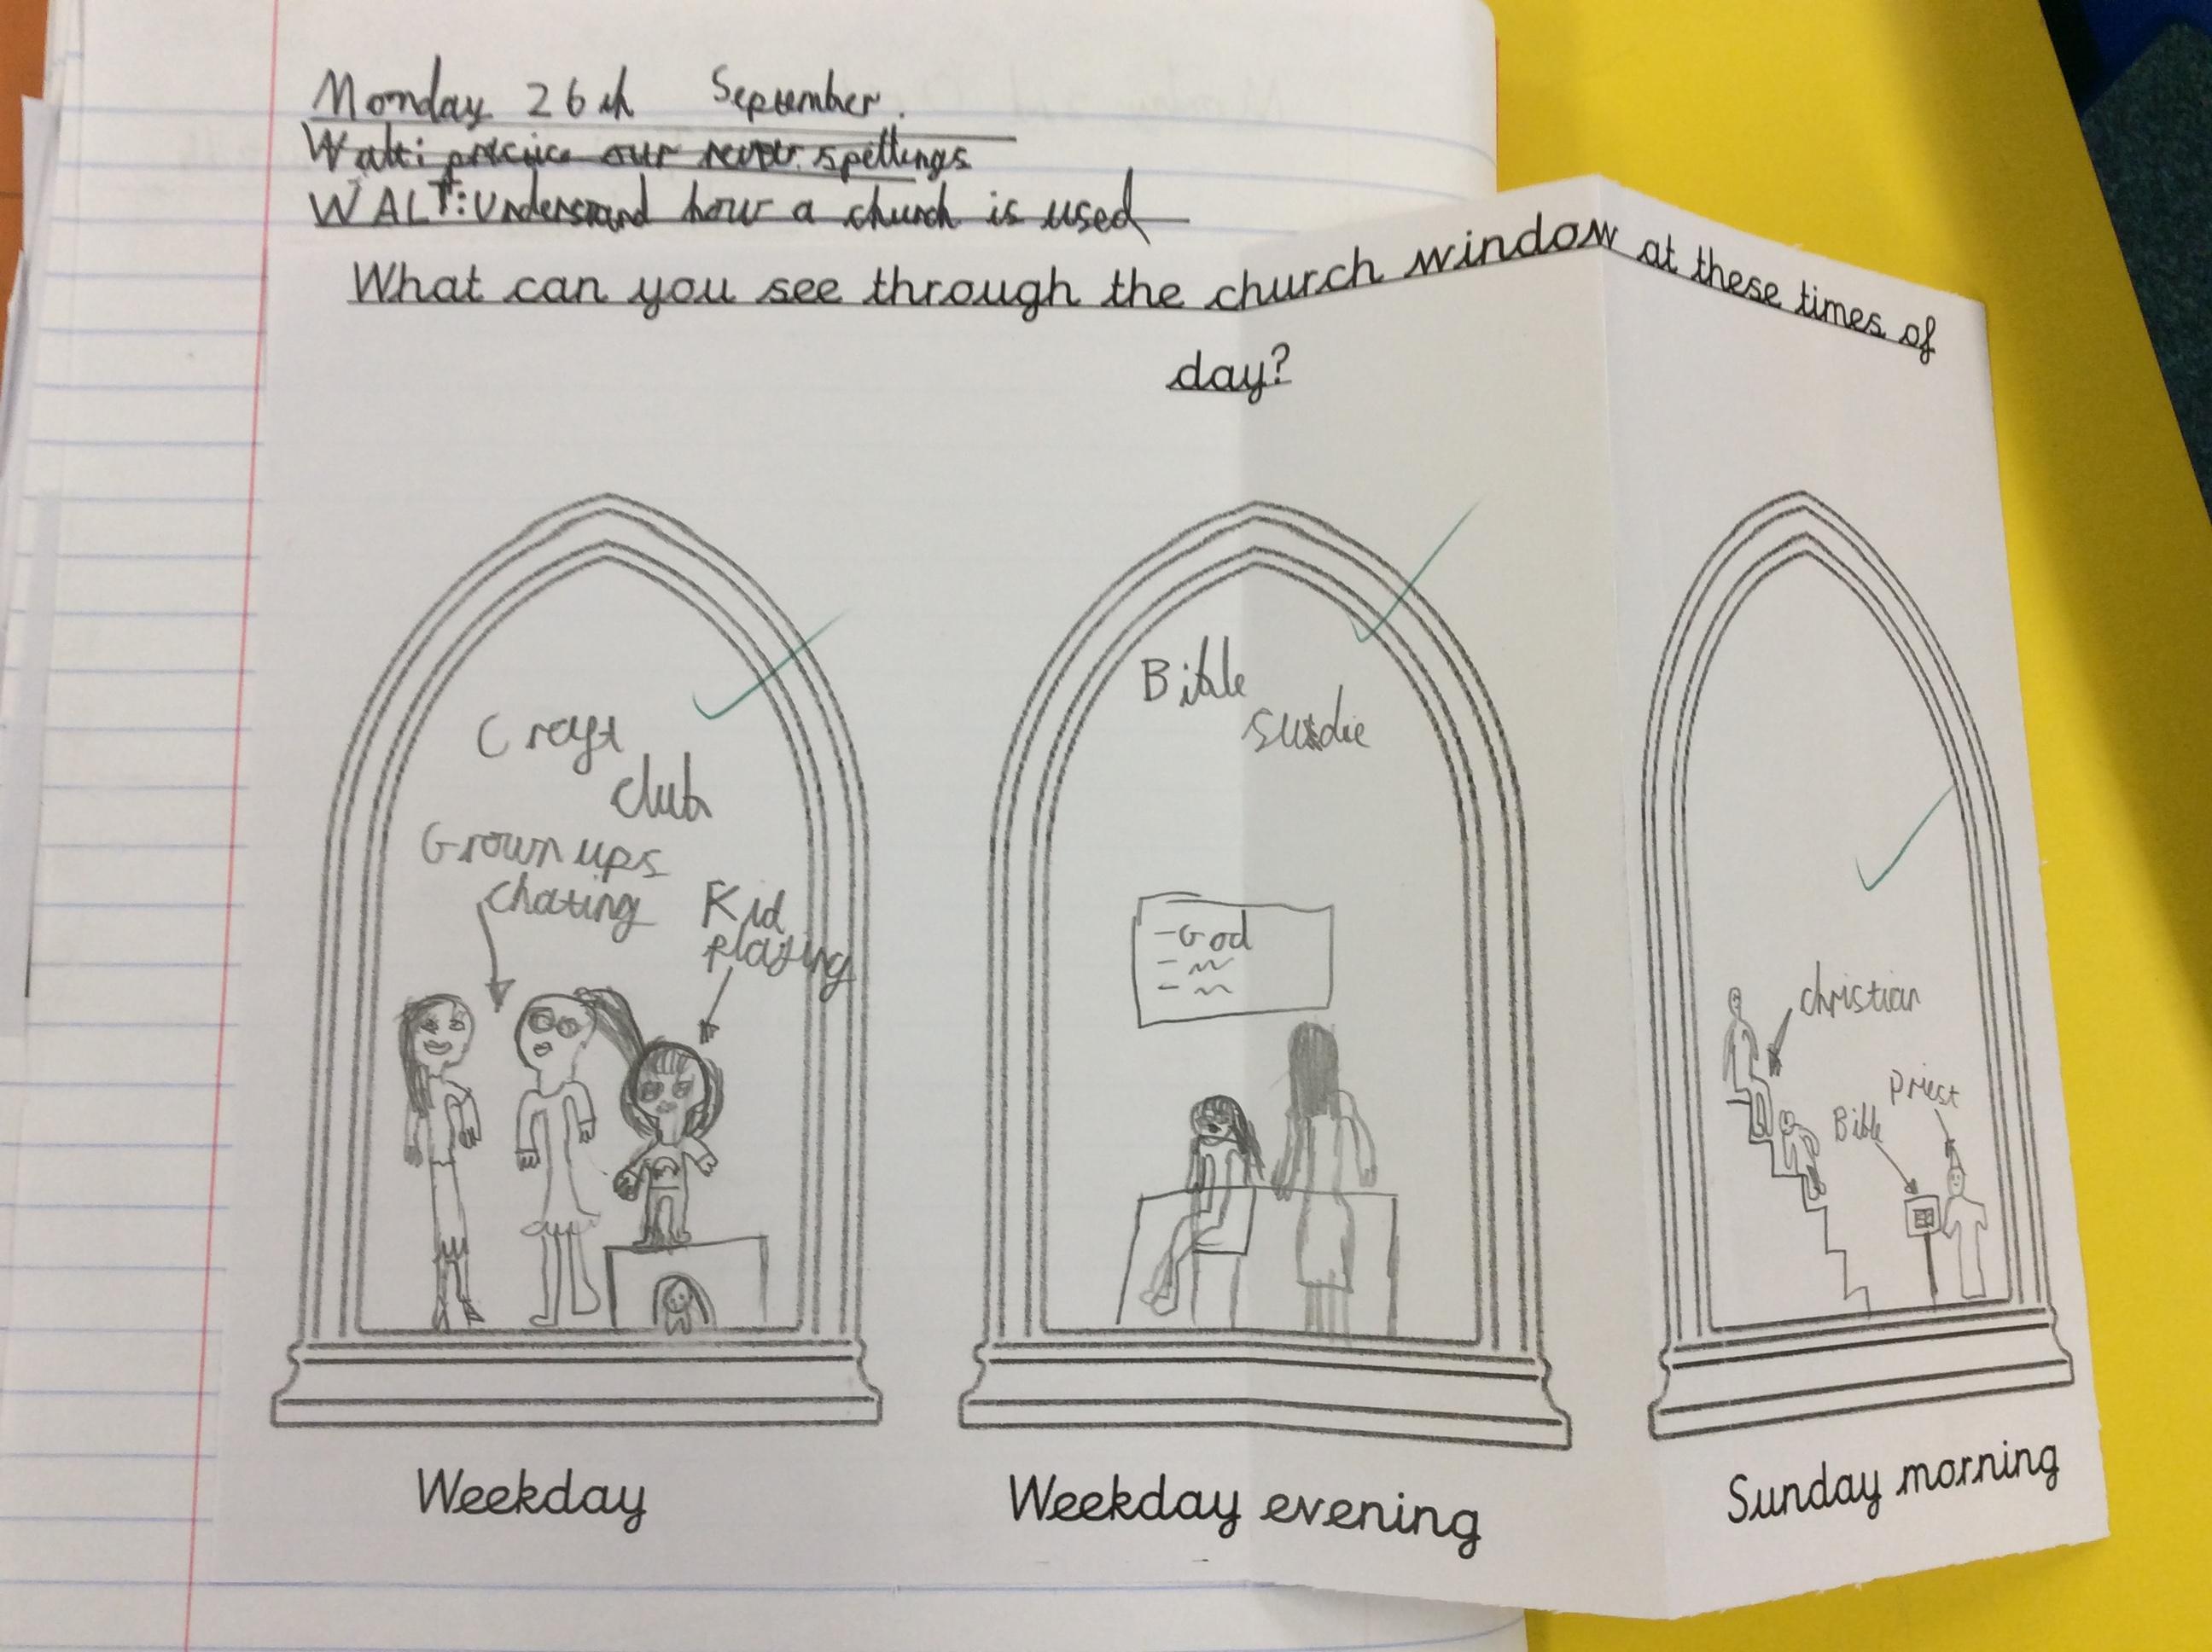 Monday 26th September.
Walt: practice our spellings
WALT: Understand how a church is used
What can you see through the church window at these times of
day?
Craft
club
Grown ups
chating
Kid
playing
Weekday
Bible
susdie
-God
Weekday evening
christian
Bible
Priest
Sunday morning